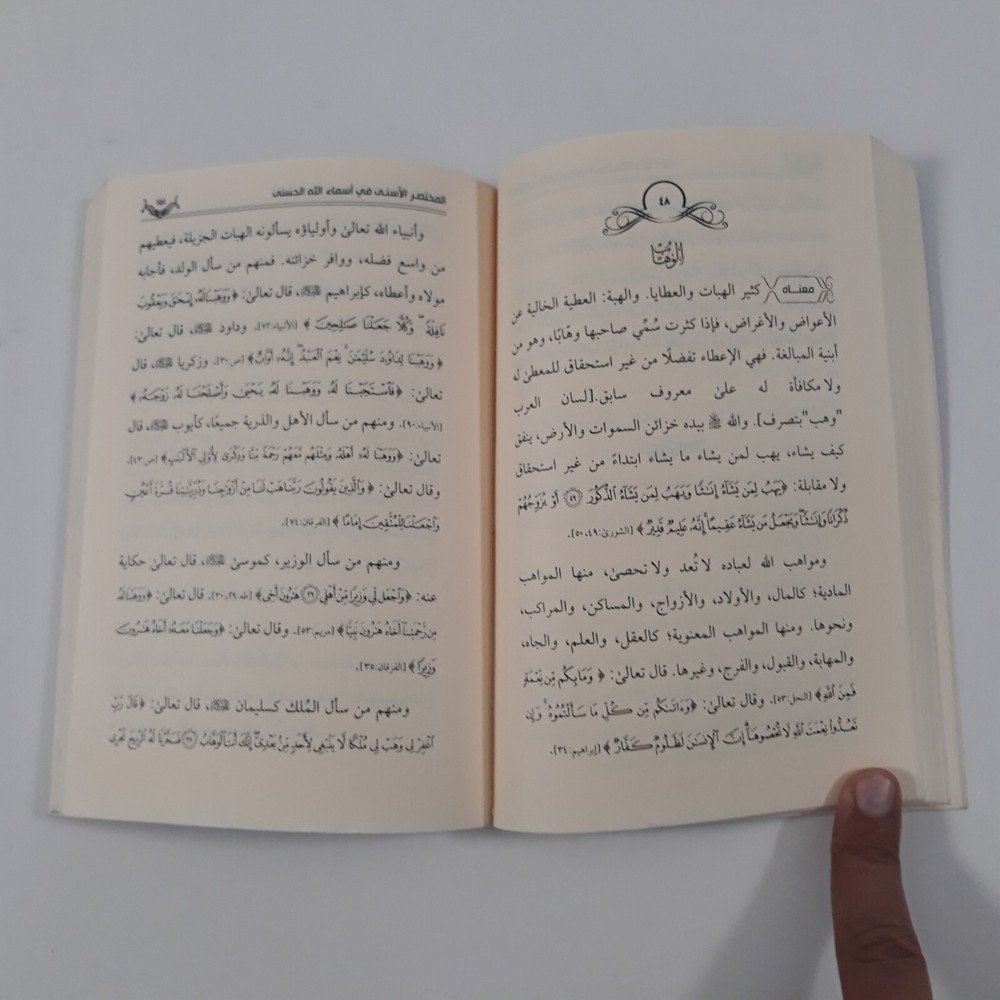 ٤٨
الوهاب
معناه كثير الهبات والعطايا. والهبة: العطية الخالية عن
الأعواض والأغراض، فإذا كثرت سُمِّي صاحبها وهّابًا، وهو من
أبنية المبالغة. فهي الإعطاء تفضلًا من غير استحقاق للمعطىٰ له
ولا مكافأة له علىٰ معروف سابق.[لسان العرب
"وهب"بتصرف]. والله ﷻ بيده خزائن السموات والأرض، ينفق
كيف يشاء، يهب لمن يشاء ما يشاء ابتداءً من غير استحقاق
ولا مقابلة: ﴿يَهَبُ لِمَن يَشَآءُ إِنَٰثًا وَيَهَبُ لِمَن يَشَآءُ ٱلذُّكُورَ ٤٩ أَوۡ يُزَوِّجُهُمۡ
ذُكۡرَانًا وَإِنَٰثًاۖ وَيَجۡعَلُ مَن يَشَآءُ عَقِيمًاۚ إِنَّهُۥ عَلِيمٌ قَدِيرٌ﴾ [الشورى:٤٩، ٥٠].
ومواهب الله لعباده لا تُعد ولا تحصىٰ، منها المواهب
المادية؛ كالمال، والأولاد، والأزواج، والمساكن، والمراكب،
ونحوها. ومنها المواهب المعنوية؛ كالعقل، والعلم، والجاه،
والمهابة، والقبول، والفرج، وغيرها. قال تعالىٰ: ﴿وَمَا بِكُم مِّن نِّعۡمَةٖ
فَمِنَ ٱللَّهِ﴾ [النحل:٥٣]. وقال تعالىٰ: ﴿وَءَاتَىٰكُم مِّن كُلِّ مَا سَأَلۡتُمُوهُۚ وَإِن
تَعُدُّواْ نِعۡمَتَ ٱللَّهِ لَا تُحۡصُوهَآۗ إِنَّ ٱلۡإِنسَٰنَ لَظَلُومٌ كَفَّارٌ﴾ [إبراهيم:٣٤].
المختصر الأسنى في أسماء الله الحسنى
وأنبياء الله تعالىٰ وأولياؤه يسألونه الهبات الجزيلة، فيعطيهم
من واسع فضله، ووافر خزائنه. فمنهم من سأل الولد، فأجابه
مولاه وأعطاه، كإبراهيم ﷺ، قال تعالىٰ: ﴿وَوَهَبۡنَا لَهُۥٓ إِسۡحَٰقَ وَيَعۡقُوبَ
نَافِلَةٗۖ وَكُلّٗا جَعَلۡنَا صَٰلِحِينَ﴾ [الأنبياء:٧٢]. وداود ﷺ، قال تعالىٰ:
﴿وَوَهَبۡنَا لِدَاوُۥدَ سُلَيۡمَٰنَۚ نِعۡمَ ٱلۡعَبۡدُ إِنَّهُۥٓ أَوَّابٌ﴾ [ص:٣٠]. وزكريا ﷺ، قال
تعالىٰ: ﴿فَٱسۡتَجَبۡنَا لَهُۥ وَوَهَبۡنَا لَهُۥ يَحۡيَىٰ وَأَصۡلَحۡنَا لَهُۥ زَوۡجَهُۥٓ﴾
[الأنبياء:٩٠]. ومنهم من سأل الأهل والذرية جميعًا، كأيوب ﷺ، قال
تعالىٰ: ﴿وَوَهَبۡنَا لَهُۥٓ أَهۡلَهُۥ وَمِثۡلَهُم مَّعَهُمۡ رَحۡمَةٗ مِّنَّا وَذِكۡرَىٰ لِأُوْلِي ٱلۡأَلۡبَٰبِ﴾ [ص:٤٣].
وقال تعالىٰ: ﴿وَٱلَّذِينَ يَقُولُونَ رَبَّنَا هَبۡ لَنَا مِنۡ أَزۡوَٰجِنَا وَذُرِّيَّٰتِنَا قُرَّةَ أَعۡيُنٖ
وَٱجۡعَلۡنَا لِلۡمُتَّقِينَ إِمَامًا﴾ [الفرقان:٧٤].
ومنهم من سأل الوزير، كموسىٰ ﷺ، قال تعالىٰ حكاية
عنه: ﴿وَٱجۡعَل لِّي وَزِيرٗا مِّنۡ أَهۡلِي ٢٩ هَٰرُونَ أَخِي﴾ [طه:٢٩، ٣٠]. قال تعالىٰ: ﴿وَوَهَبۡنَا لَهُۥ
مِن رَّحۡمَتِنَآ أَخَاهُ هَٰرُونَ نَبِيّٗا﴾ [مريم:٥٣]. وقال تعالىٰ: ﴿وَجَعَلۡنَا مَعَهُۥٓ أَخَاهُ هَٰرُونَ
وَزِيرٗا﴾ [الفرقان:٣٥].
ومنهم من سأل المُلك كسليمان ﷺ، قال تعالىٰ: ﴿قَالَ رَبِّ
ٱغۡفِرۡ لِي وَهَبۡ لِي مُلۡكٗا لَّا يَنۢبَغِي لِأَحَدٖ مِّنۢ بَعۡدِيٓۖ إِنَّكَ أَنتَ ٱلۡوَهَّابُ ٣٥ فَسَخَّرۡنَا لَهُ ٱلرِّيحَ تَجۡرِي